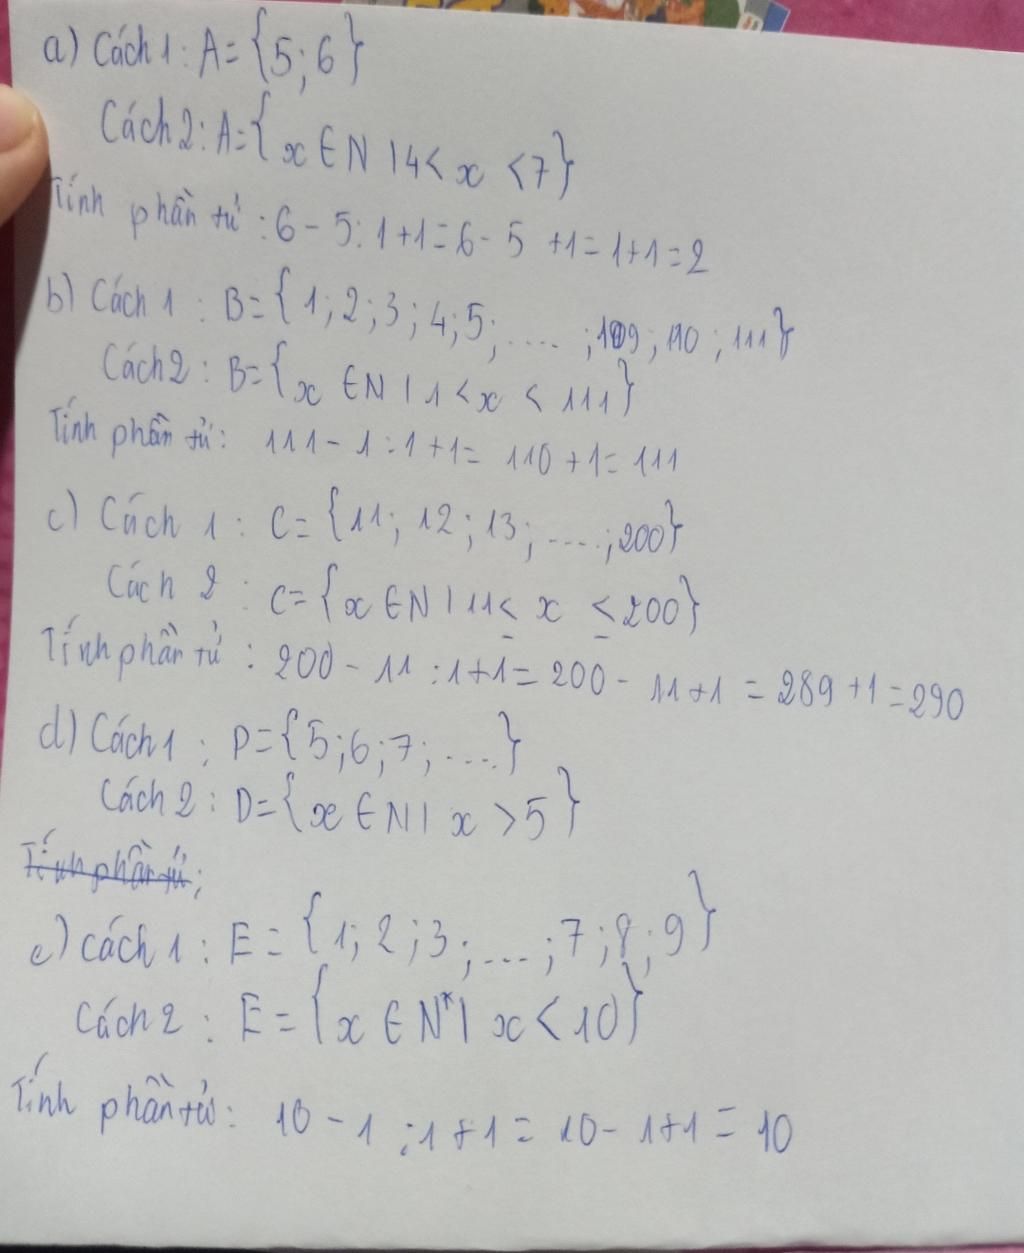 a) Cách 1: A = {5; 6}
Cách 2: A = {x ∈ N | 4 < x < 7}
Tính phần tử: 6 - 5 : 1 + 1 = 6 - 5 + 1 = 1 + 1 = 2
b) Cách 1: B = {1; 2; 3; 4; 5; ....; 109; 110; 111}
Cách 2: B = {x ∈ N | 1 < x < 111}
Tính phần tử: 111 - 1 : 1 + 1 = 110 + 1 = 111
c) Cách 1: C = {11; 12; 13; ....; 200}
Cách 2: C = {x ∈ N | 11 ≤ x ≤ 200}
Tính phần tử: 200 - 11 : 1 + 1 = 200 - 11 + 1 = 289 + 1 = 290
d) Cách 1: D = {5; 6; 7; ....}
Cách 2: D = {x ∈ N | x > 5}
Tính phần tử:
e) Cách 1: E = {1; 2; 3; ...; 7; 8; 9}
Cách 2: E = {x ∈ N* | x < 10}
Tính phần tử: 10 - 1 : 1 + 1 = 10 - 1 + 1 = 10